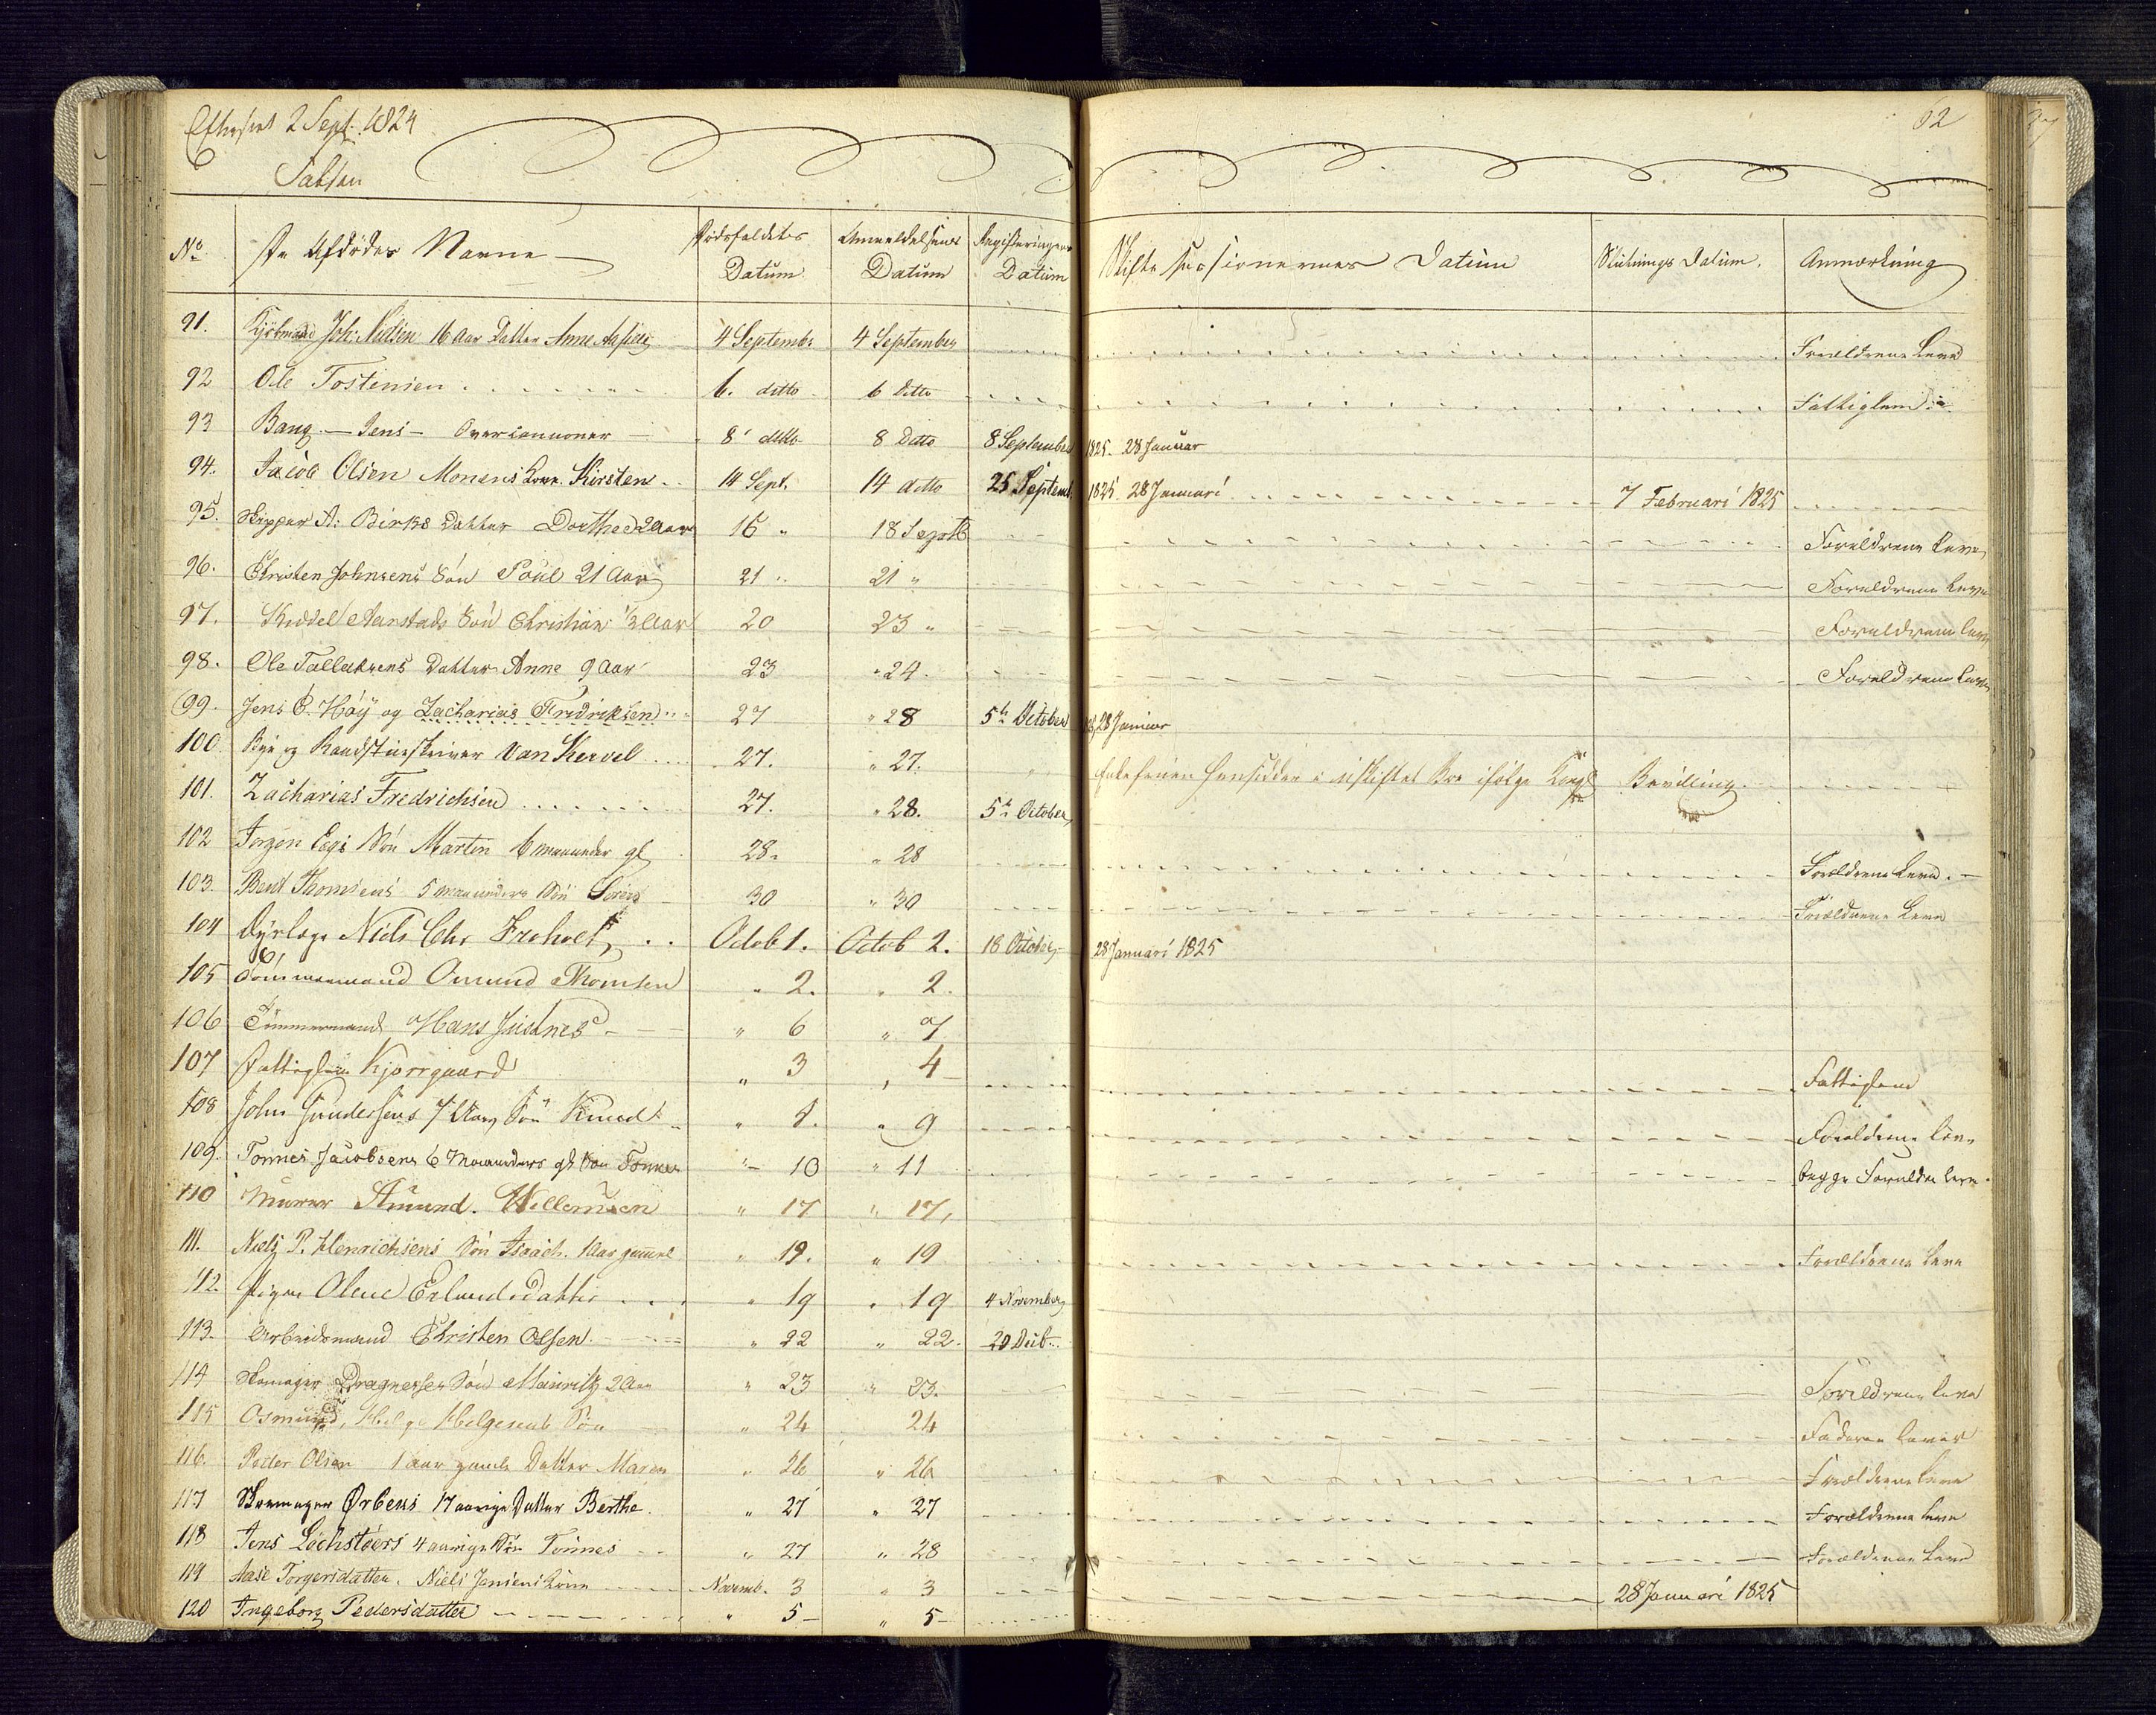 Efterset 2 Sept. 1824
62
No De Afdødes Navne Dødsfaldets Datum Anmeldelsens Datum Registreringens Datum Skiftesessionernes Datum Slutnings Datum Anmærkning
91. Kjøbmand Joh: Nielsen 16 Aar Datter Anne 4 Septembr 4 September Forældrene Leve
92 Ole Tostensen 6. ditto 6 Ditto Fattiglem
93 Bang - Jens - Overcanoneer 8 ditto 8 Ditto 8 September 1825. 28 Januar
94. Jacob Olsen Monens Kone Kirsten 14 Sept. 14 ditto 25 Septemb. 1825. 28 Januari 7 Februari 1825
95. Skipper A: Birks Datter Dorthe 2 Aar 16 " 18 Septb Forældrene Leve
96. Christen Johnsens Søn Poul 21 Aar 21 " 21 " Forældrene Leve
97. Kiddel Aanstads Søn Christian 1/2 Aar 20 23 " Forældrene Leve
98. Ole Tallaksens Datter Anne 9 Aar 23 " 24. Forældrene Leve
99. Jens C. Høÿ og Zacharias Fredriksen 27 " 28 5te October 28 Januar
100 Bye og Raadstueskriver Van Kervel 27. " 27. Enkefruen hensidder i uskiftet Boe ifølge Kongl Bevilling
101. Zacharias Fredrichsen 27. " 28. 5te October
102 Jørgen Eegs Søn Martin 6 maaneder gl 28. " 28 Forældrene Leve.
103. Bent Thomsens 5 maaneders Søn Søren 30 " 30 Forældrene Leve
104 Dyrlæge Niels Chr Froholt Octob 1. Octob 2. 18 October 28 Januari 1825
105 Tømmermand Omund Thomsen " 2. " 2.
106 Tømmermand Hans Justnes " 6 " 7
107 Fattiglem Kjørrgaard " 3 " 4 Fattiglem
108 John Gundersens 7 Aars Søn Knud " 8. " 9 Forældrene Leve
109. Tønnes Jacobsens 6 Maaneders gl Søn Tønnes " 10 " 11 begge Forældre leve.
110 Murer Amund Willemsen " 17 " 17,
111. Niels P. Henrichsens Søn Isaach. 1 Aar gammel " 19. " 19 Forældrene Leve
112. Pigen Olene Erlandsdatter " 19 " 19 4 November
113. Arbeidsmand Christen Olsen " 22 " 22. 20 Decb.
114 Skomager Dragnesses Søn Mauritz 2 Aar " 23 " 23. Forældrene Leve
115 Osmund, Helge Helgesens Søn " 24 24 Faderen Lever
116. Peder Olsen 1 aar gamle Datter Maren " 26 " 26 Forældrene Leve
117 Skomager Ørbeks 17 aarige Datter Berthe. " 27 " 27 Forældrene Leve
118 Jens Lochstøers 4 aarige Søn Tønnes " 27 " 28 Forældrene Leve
119 Aase Torgersdatter. Niels Jensens Kone Novemb. 3 " 3 28 Januari 1825
120 Ingeborg Pedersdatter " 5 " 5